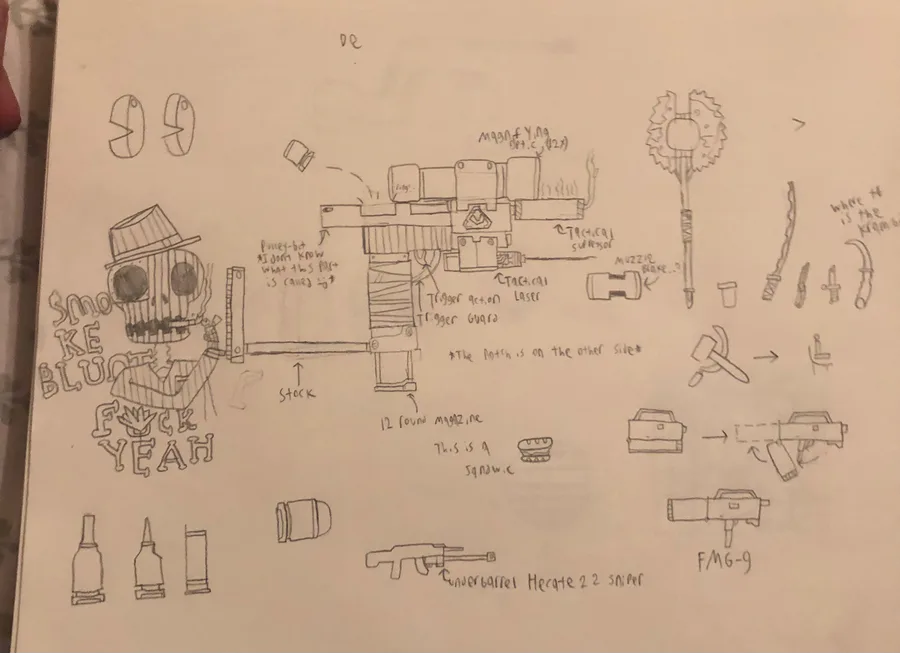 DE
MAGNIFYING
OPTIC (12x)
TACTICAL
MUZZLE
BRAKE..?
where tf
is the
*I don't know
what this part
is called
TACTICAL
LASER
Trigger action
Trigger Guard
SMO
KE
BLUNT
F CK
YEAH
*The notch is on the other side*
Stock
12 round magazine
This is a
FMG-9
underbarrel Hecate 22 sniper